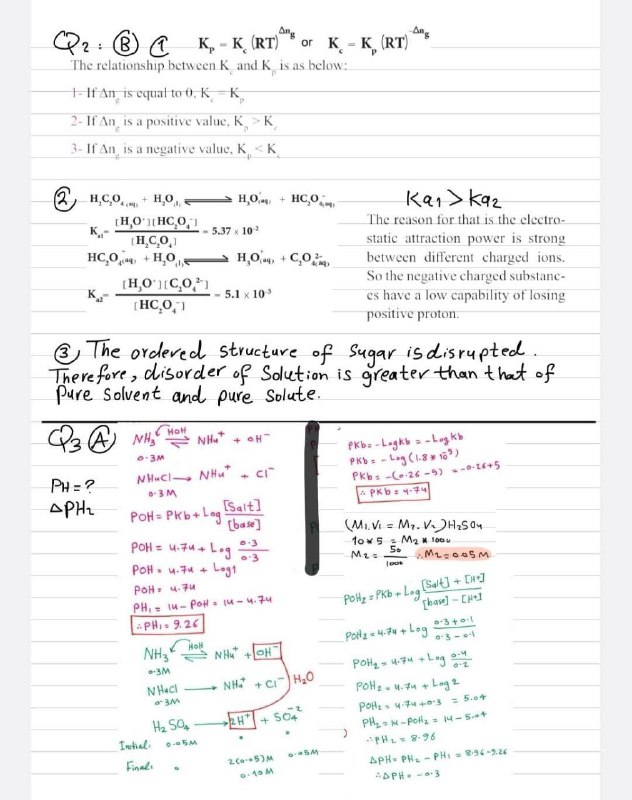 Q2: Ⓑ ① Kp = Kc (RT)^Δng or Kc = Kp (RT)^-Δng
The relationship between Kc and Kp is as below:
1- If Δng is equal to 0, Kc = Kp
2- If Δng is a positive value, Kp > Kc
3- If Δng is a negative value, Kp < Kc
② H₂C₂O₄(aq) + H₂O(l) ⇌ H₃O⁺(aq) + HC₂O₄⁻(aq)
Ka1 = [H₃O⁺][HC₂O₄⁻] / [H₂C₂O₄] = 5.37 × 10⁻²
HC₂O₄⁻(aq) + H₂O(l) ⇌ H₃O⁺(aq) + C₂O₄²⁻(aq)
Ka2 = [H₃O⁺][C₂O₄²⁻] / [HC₂O₄⁻] = 5.1 × 10⁻⁵
Ka1 > Ka2
The reason for that is the electro-
static attraction power is strong
between different charged ions.
So the negative charged substanc-
es have a low capability of losing
positive proton.
③ The ordered structure of sugar is disrupted.
Therefore, disorder of Solution is greater than that of
Pure Solvent and pure solute.
Q3 Ⓐ
PH = ?
ΔPH₂
NH₃ ⇌ NH₄⁺ + OH⁻
HOH
0.3M
NH₄Cl → NH₄⁺ + Cl⁻
0.3M
POH = PKb + Log [Salt] / [base]
POH = 4.74 + Log 0.3 / 0.3
POH = 4.74 + Log1
POH = 4.74
PH₁ = 14 - POH = 14 - 4.74
∴ PH₁ = 9.26
NH₃ ⇌ NH₄⁺ + OH⁻
HOH
0.3M
NH₄Cl → NH₄⁺ + Cl⁻
0.3M
H₂O
H₂SO₄ → 2H⁺ + SO₄⁻²
Initial: 0.05M 0 0
Final: 0 2(0.05)M 0.05M
0.10M
PKb = -Logkb = -Logkb
PKb = -Log(1.8 * 10⁻⁵)
PKb = -(0.26 - 5) = -0.26 + 5
∴ PKb = 4.74
(M₁.V₁ = M₂.V₂)H₂SO₄
10 * 5 = M₂ * 1000
M₂ = 50 / 1000 ∴ M₂ = 0.05M
POH₂ = PKb + Log [Salt] + [H⁺] / [base] - [H⁺]
POH₂ = 4.74 + Log 0.3 + 0.1 / 0.3 - 0.1
POH₂ = 4.74 + Log 0.4 / 0.2
POH₂ = 4.74 + Log 2
POH₂ = 4.74 + 0.3 = 5.04
PH₂ = 14 - POH₂ = 14 - 5.04
∴ PH₂ = 8.96
ΔPH = PH₂ - PH₁ = 8.96 - 9.26
∴ ΔPH = -0.3